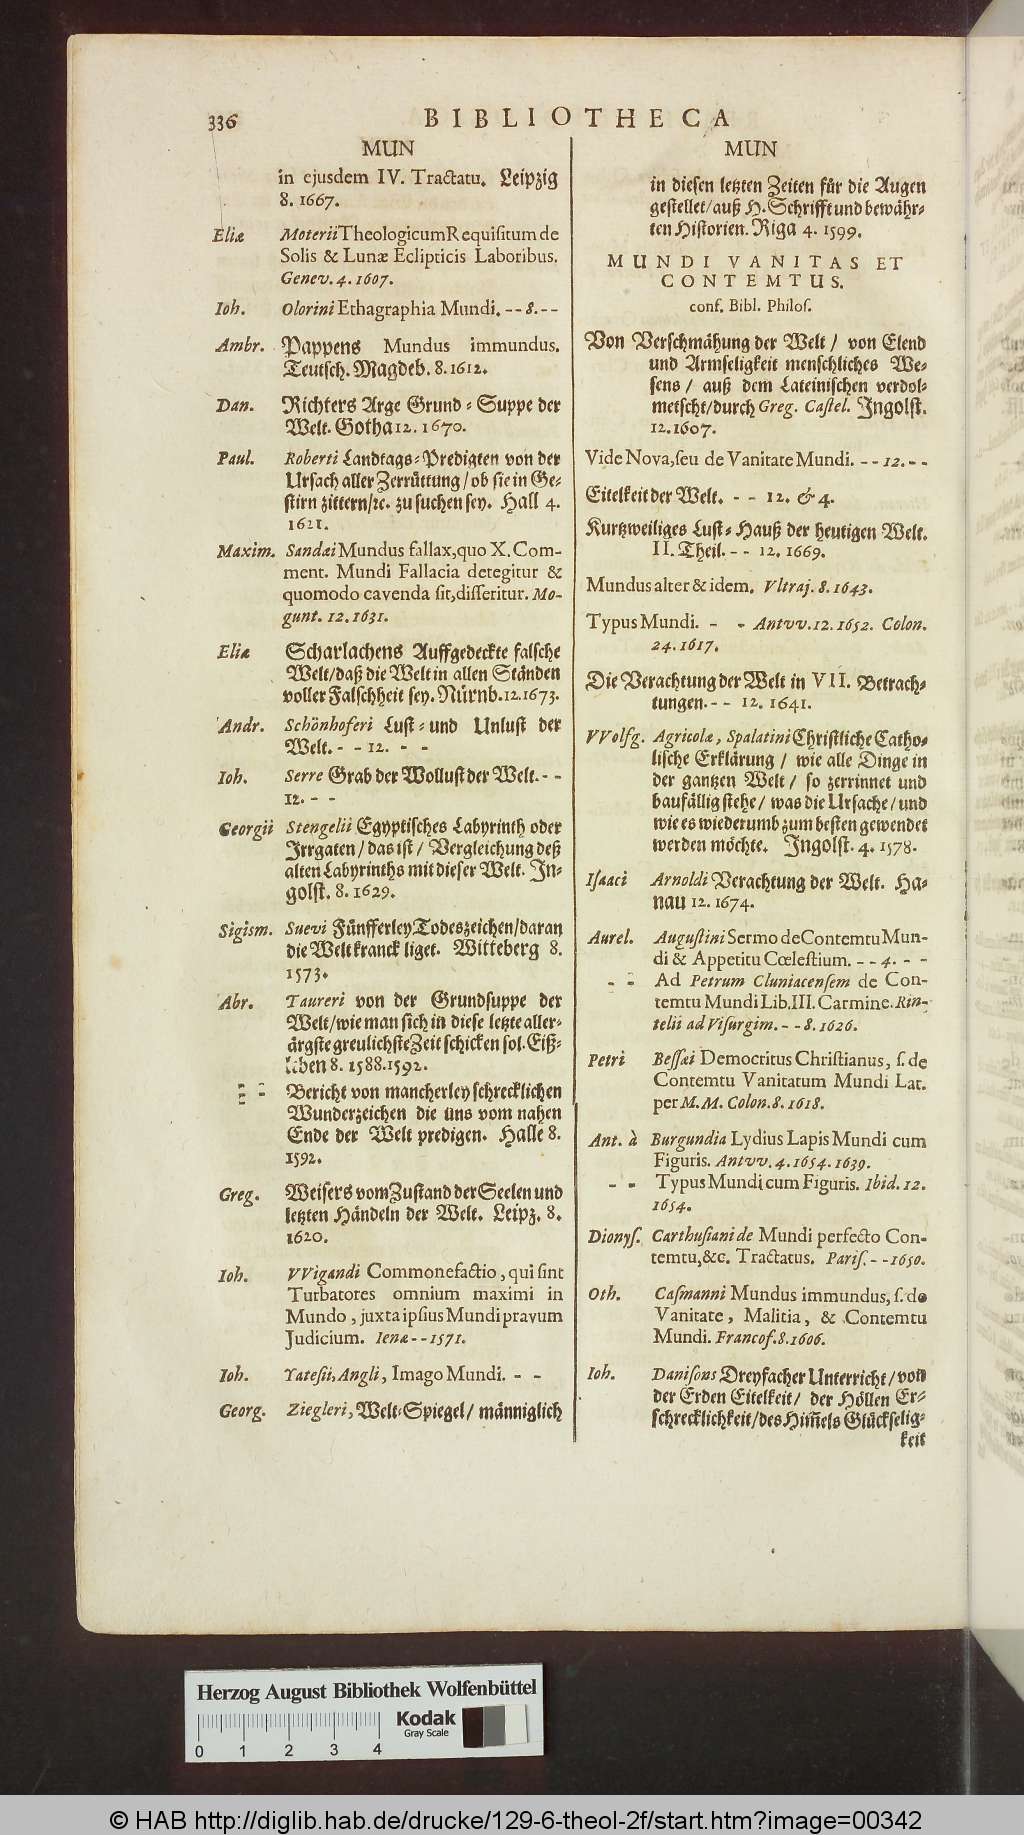 336 BIBLIOTHECA
MUN
in ejusdem IV. Tractatu. Leipzig
8. 1667.
Eliæ Moterii Theologicum Requisitum de
Solis & Lunæ Eclipticis Laboribus.
Genev. 4. 1607.
Ioh. Olorini Ethagraphia Mundi. - - 8. - -
Ambr. Pappens Mundus immundus.
Teutsch. Magdeb. 8. 1612.
Dan. Richters Arge Grund-Suppe der
Welt. Gotha 12. 1670.
Paul. Roberti Landtags-Predigten von der
Ursach aller Zerrüttung/ob sie in Ge-
stirn zittern/ꝛc. zu suchen sey. Hall 4.
1621.
Maxim. Sandæi Mundus fallax, quo X. Com-
ment. Mundi Fallacia detegitur &
quomodo cavenda sit, disseritur. Mo-
gunt. 12. 1631.
Eliæ Scharlachens Auffgedeckte falsche
Welt/daß die Welt in allen Ständen
voller Falschheit sey. Nürnb. 12. 1673.
Andr. Schönhoferi Lust- und Unlust der
Welt. - - 12. - -
Ioh. Serre Grab der Wollust der Welt. - -
12. - -
Georgii Stengelii Egyptisches Labyrinth oder
Irrgaten/das ist/Vergleichung deß
alten Labyrinths mit dieser Welt. In-
golst. 8. 1629.
Sigism. Suevi Fünfferley Todeszeichen/daran
die Welt kranck liget. Witteberg 8.
1573.
Abr. Taureri von der Grundsuppe der
Welt/wie man sich in diese letzte aller-
ärgste greulichste Zeit schicken sol. Eiß-
leben 8. 1588. 1592.
- - Bericht von mancherley schrecklichen
Wunderzeichen die uns vom nahen
Ende der Welt predigen. Halle 8.
1592.
Greg. Weisers vom Zustand der Seelen und
letzten Händeln der Welt. Leipz. 8.
1620.
Ioh. VVigandi Commonefactio, qui sint
Turbatores omnium maximi in
Mundo, juxta ipsius Mundi pravum
Judicium. Ienæ - - 1571.
Ioh. Yatesii, Angli, Imago Mundi. - -
Georg. Ziegleri, Welt-Spiegel/männiglich
MUN
in diesen letzten Zeiten für die Augen
gestellet/auß H. Schrifft und bewähr-
ten Historien. Riga 4. 1599.
MUNDI VANITAS ET
CONTEMTUS.
conf. Bibl. Philos.
Von Verschmähung der Welt/von Elend
und Armseligkeit menschliches We-
sens/auß dem Lateinischen verdol-
metscht/durch Greg. Castel. Ingolst.
12. 1607.
Vide Nova, seu de Vanitate Mundi. - - 12. - -
Eitelkeit der Welt. - - 12. & 4.
Kurtzweiliges Lust-Hauß der heutigen Welt.
II. Theil. - - 12. 1669.
Mundus alter & idem. Vltraj. 8. 1643.
Typus Mundi. - - Antvv. 12. 1652. Colon.
24. 1617.
Die Verachtung der Welt in VII. Betrach-
tungen. - - 12. 1641.
VVolfg. Agricolæ, Spalatini Christliche Catho-
lische Erklärung/wie alle Dinge in
der gantzen Welt/so zerrinnet und
baufällig stehe/was die Ursache/und
wie es wiederumb zum besten gewendet
werden möchte. Ingolst. 4. 1578.
Isaaci Arnoldi Verachtung der Welt. Ha-
nau 12. 1674.
Aurel. Augustini Sermo de Contemtu Mun-
di & Appetitu Cœlestium. - - 4. - -
- - Ad Petrum Cluniacensem de Con-
temtu Mundi Lib. III. Carmine. Rin-
telii ad Visurgim. - - 8. 1626.
Petri Bessæi Democritus Christianus, s. de
Contemtu Vanitatum Mundi Lat.
per M. M. Colon. 8. 1618.
Ant. à Burgundia Lydius Lapis Mundi cum
Figuris. Antvv. 4. 1654. 1639.
- - Typus Mundi cum Figuris. Ibid. 12.
1654.
Dionys. Carthusiani de Mundi perfecto Con-
temtu, &c. Tractatus. Paris. - - 1650.
Oth. Casmanni Mundus immundus, s. de
Vanitate, Malitia, & Contemtu
Mundi. Francof. 8. 1606.
Ioh. Danisons Dreyfacher Unterricht/von
der Erden Eitelkeit/der Höllen Er-
schrecklichkeit/des Him̄els Glückselig-
keit
Herzog August Bibliothek Wolfenbüttel
Kodak
Gray Scale
0 1 2 3 4
© HAB http://diglib.hab.de/drucke/129-6-theol-2f/start.htm?image=00342